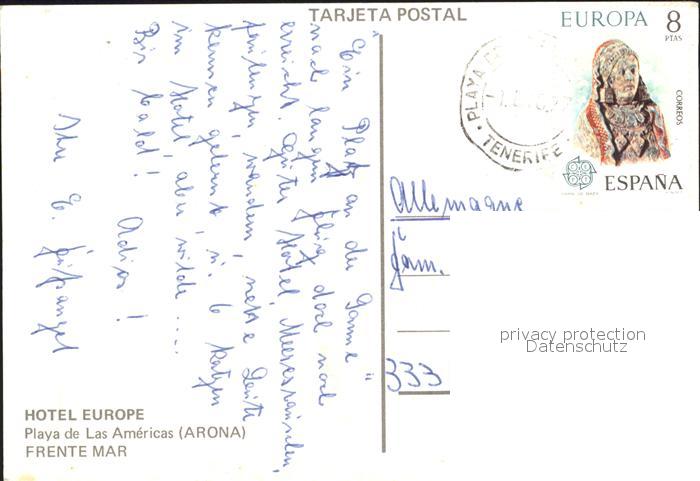 TARJETA POSTAL
EUROPA 8
PTAS
CORREOS
ESPAÑA
PLAYA DE
TENERIFE
"Ein Platz an der Sonne"
nach langem Flug doch noch
erreicht. Gutes Hotel, Meeresrauschen,
wandern, nette Leute
kennen gelernt u. 6 Katzen
im Hotel, aber wilde....
Bis bald!
Adios!
Ihr E.
Allemagne
Fam.
333
privacy protection
Datenschutz
HOTEL EUROPE
Playa de Las Américas (ARONA)
FRENTE MAR